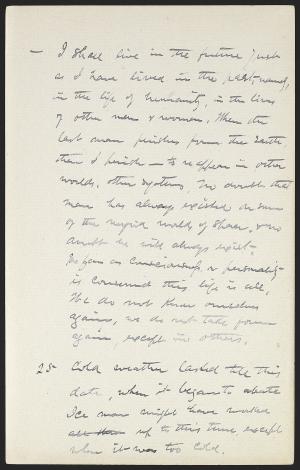 — I shall live in the future just
as I have lived in the past – namely,
in the life of humanity, in the lives
of other men & women. When the
last man perishes from the earth
then I perish — to reappear in other
worlds, other systems. No doubt that
man has always existed on some
of the myriad worlds of space, & no
doubt he will always exist.
So far as consciousness & personality
is concerned this life is all.
We do not know ourselves
again, we do not take form
again except in others.
25 Cold weather lasted till this
date, when it began to abate
Ice men might have worked
all the up to this time except
when it was too cold.